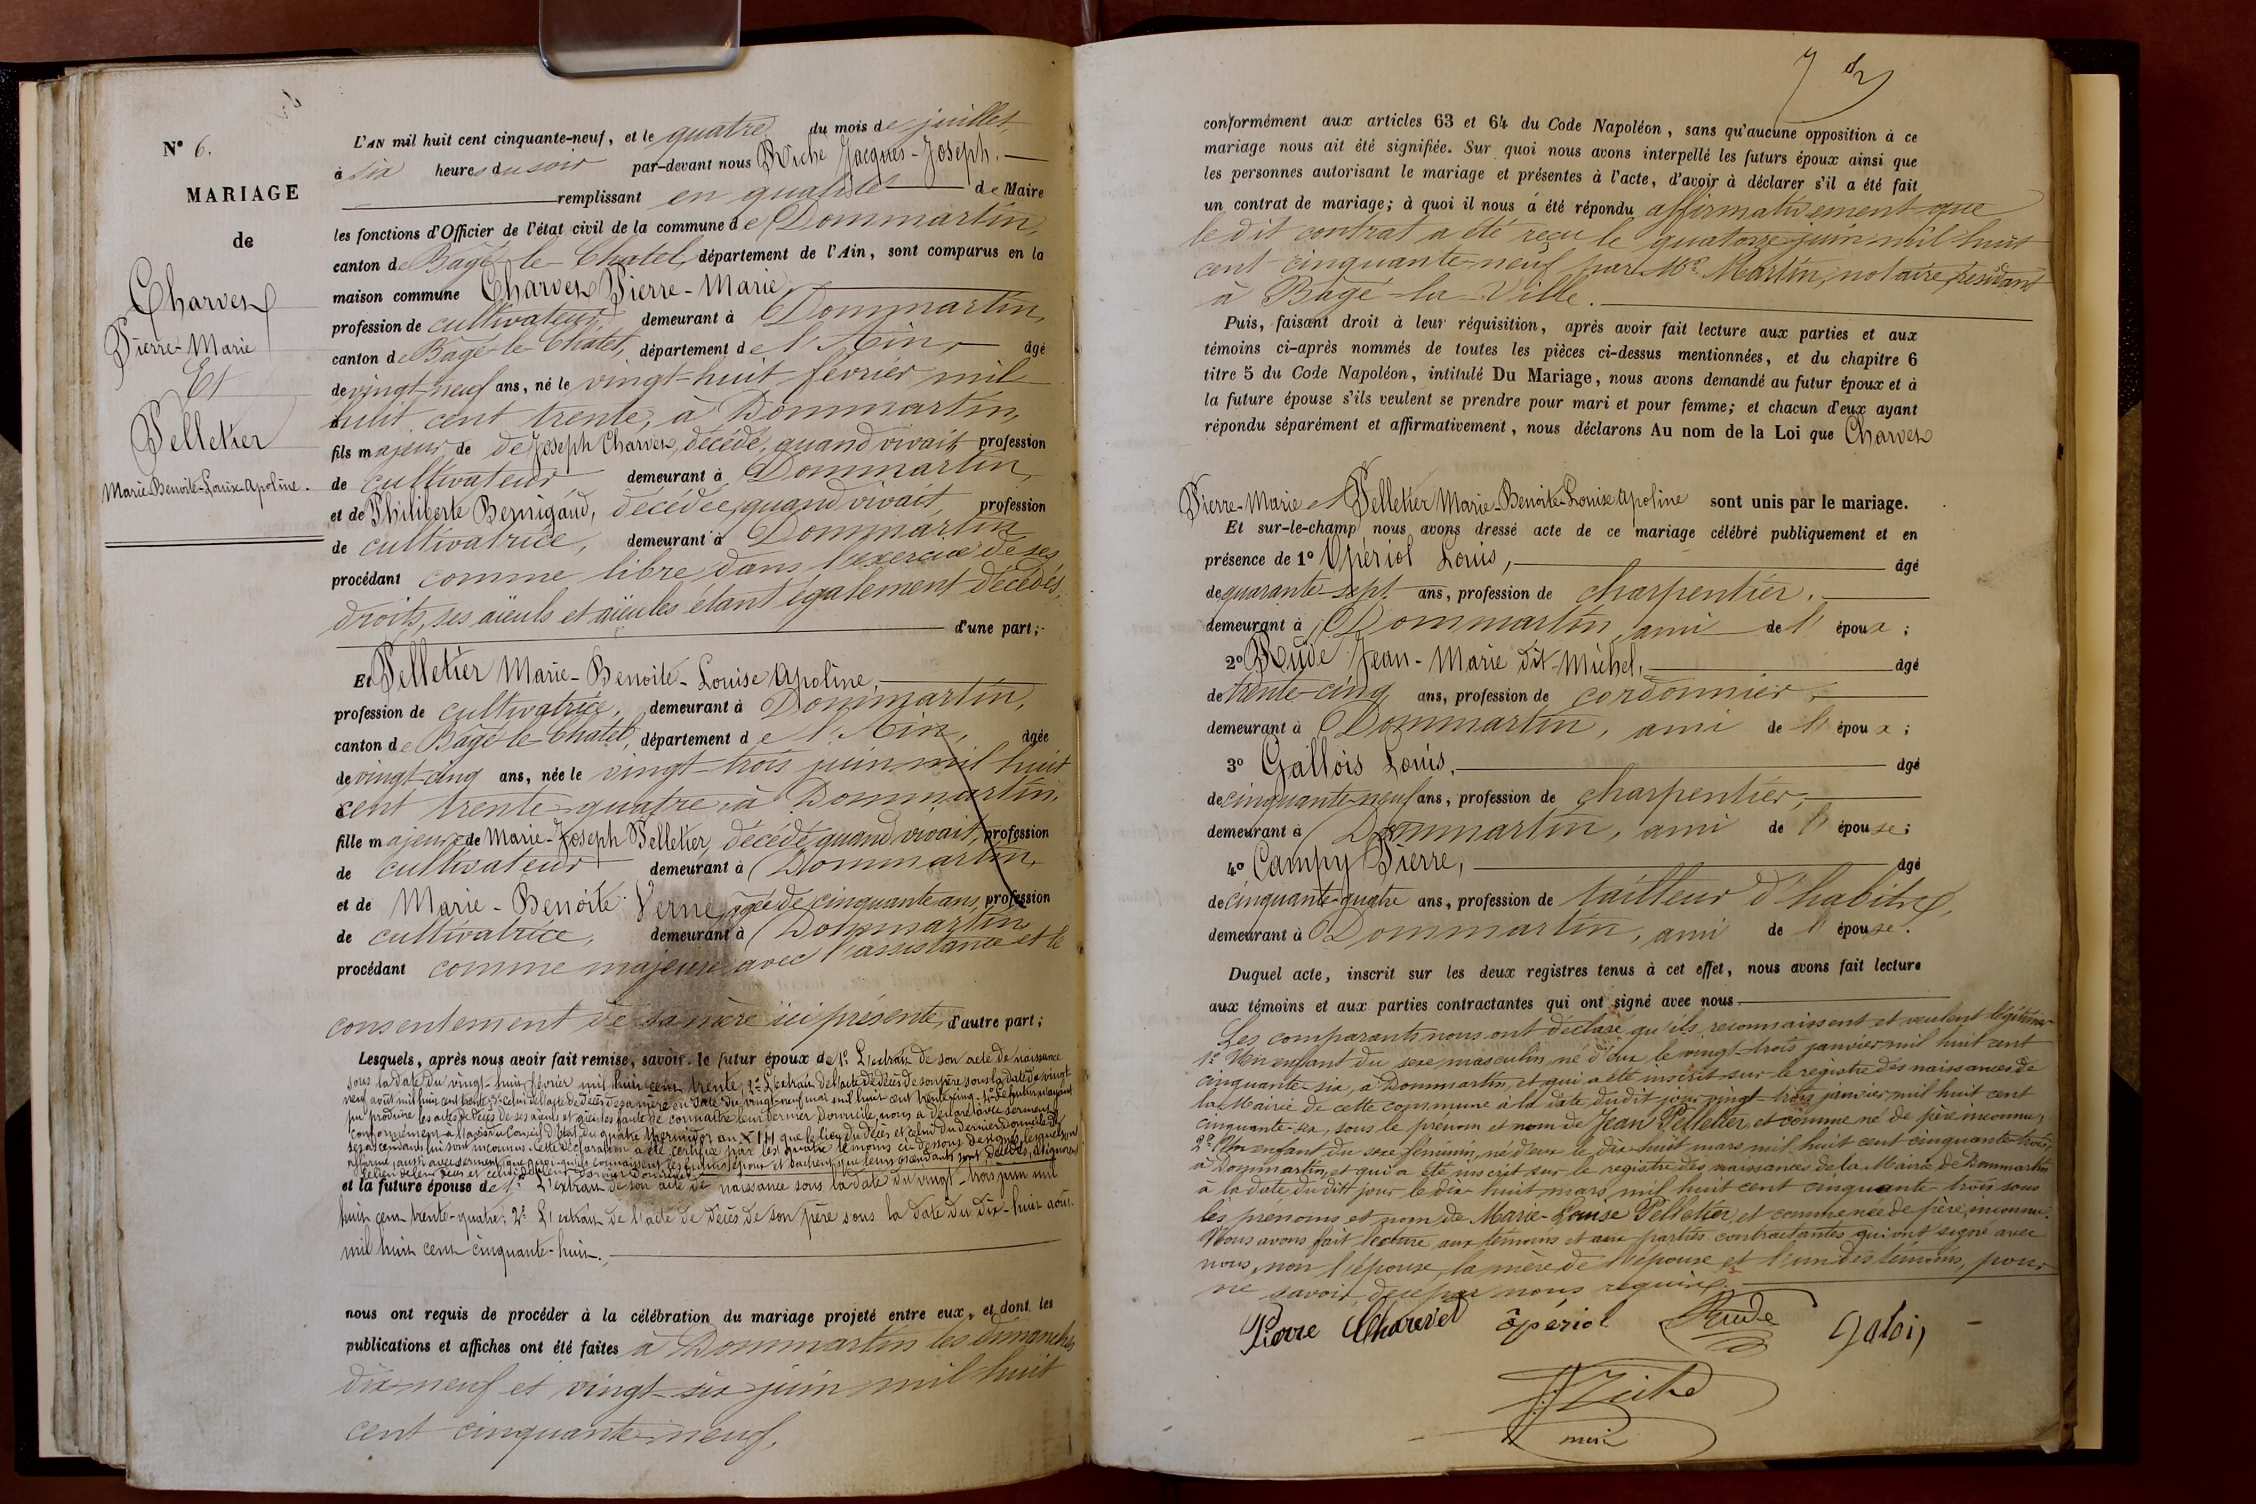 N° 6.
MARIAGE
de
Charvet
Pierre-Marie
Et
Pelletier
Marie-Benoite-Louise-Apoline.
L'AN mil huit cent cinquante-neuf, et le quatre du mois de juillet,
à six heures du soir par-devant nous Riche Jacques-Joseph.
remplissant en qualité de Maire
les fonctions d'Officier de l'état civil de la commune de Dommartin,
canton de Bâgé-le-Chatel, département de l'Ain, sont comparus en la
maison commune Charvet Pierre-Marie,
profession de cultivateur, demeurant à Dommartin,
canton de Bâgé-le-Chatel, département de l'Ain, âgé
de vingt-neuf ans, né le vingt-huit février mil
huit cent trente, à Dommartin,
fils majeur de de Joseph Charvet, décédé, quand vivait profession
de cultivateur demeurant à Dommartin,
et de Philiberte Bernigaud, décédée, quand vivait, profession
de cultivatrice, demeurant à Dommartin
procédant comme libre dans l'exercice de ses
droits, ses aïeuls et aïeules étant également décédés,
d'une part;
Et Pelletier Marie-Benoite-Louise Apoline,
profession de cultivatrice, demeurant à Dommartin,
canton de Bâgé-le-Chatel, département de l'Ain, âgée
de vingt-cinq ans, née le vingt-trois juin mil huit
cent trente-quatre, à Dommartin,
fille majeure de Marie-Joseph Pelletier, décédé quand vivait, profession
de cultivateur demeurant à Dommartin,
et de Marie-Benoite Verne, âgée de cinquante ans, profession
de cultivatrice, demeurant à Dommartin,
procédant comme majeure avec l'assistance et le
consentement de sa mère ici présente, d'autre part;
Lesquels, après nous avoir fait remise, savoir: le futur époux de 1° L'extrait de son acte de naissance
sous la date du vingt-huit février mil huit cent trente, 2° L'extrait de l'acte de décès de son père sous la date du vingt
neuf août mil huit cent trente, 3° celui de l'acte de décès de sa mère en date du vingt-neuf mai mil huit cent trente-cinq. 4° Le futur n'ayant
pu produire les actes de décès de ses aïeuls et aïeules faute de connaître leur dernier domicile, nous a déclaré avec serment
conformément à l'avis du Conseil d'Etat du quatre thermidor an XIII que le lieu du décès et celui du dernier domicile de
ses ascendants lui sont inconnus. Cette déclaration a été certifiée par les quatre témoins ci-dessous désignés, lesquels ont
affirmé, aussi avec serment, que quoiqu'ils connaissent les futurs époux et sachent que leurs ascendants sont décédés, ils ignorent
le lieu de leur décès et celui de leur dernier domicile.
et la future épouse de 1° L'extrait de son acte de naissance sous la date du vingt-trois juin mil
huit cent trente-quatre; 2° L'extrait de l'acte de décès de son père sous la date du dix-huit août
mil huit cent cinquante-huit.
nous ont requis de procéder à la célébration du mariage projeté entre eux, et dont les
publications et affiches ont été faites à Dommartin les dimanches
dix-neuf et vingt-six juin mil huit
cent cinquante-neuf,
conformément aux articles 63 et 64 du Code Napoléon, sans qu'aucune opposition à ce
mariage nous ait été signifiée. Sur quoi nous avons interpellé les futurs époux ainsi que
les personnes autorisant le mariage et présentes à l'acte, d'avoir à déclarer s'il a été fait
un contrat de mariage; à quoi il nous a été répondu affirmativement que
le dit contrat a été reçu le quatorze juin mil huit
cent cinquante-neuf par Me Martin, notaire, résidant
à Bâgé-la-Ville.
Puis, faisant droit à leur réquisition, après avoir fait lecture aux parties et aux
témoins ci-après nommés de toutes les pièces ci-dessus mentionnées, et du chapitre 6
titre 5 du Code Napoléon, intitulé Du Mariage, nous avons demandé au futur époux et à
la future épouse s'ils veulent se prendre pour mari et pour femme; et chacun d'eux ayant
répondu séparément et affirmativement, nous déclarons Au nom de la Loi que Charvet
Pierre-Marie et Pelletier Marie-Benoite-Louise Apoline sont unis par le mariage.
Et sur-le-champ nous avons dressé acte de ce mariage célébré publiquement et en
présence de 1° Opériol Louis, âgé
de quarante-sept ans, profession de charpentier,
demeurant à Dommartin, ami de l'époux;
2° Rude Jean-Marie dit Michel, âgé
de trente-cinq ans, profession de cordonnier,
demeurant à Dommartin, ami de l'époux;
3° Gallois Louis, âgé
de cinquante-neuf ans, profession de charpentier,
demeurant à Dommartin, ami de l'épouse;
4° Campy Pierre, âgé
de cinquante-quatre ans, profession de tailleur d'habits,
demeurant à Dommartin, ami de l'épouse.
Duquel acte, inscrit sur les deux registres tenus à cet effet, nous avons fait lecture
aux témoins et aux parties contractantes qui ont signé avec nous
Les comparants nous ont déclaré qu'ils reconnaissent et veulent légitimer
1° Un enfant du sexe masculin né d'eux le vingt-trois janvier mil huit cent
cinquante-six, à Dommartin, et qui a été inscrit sur le registre des naissances de
la Mairie de cette commune à la date dudit jour vingt-trois janvier mil huit cent
cinquante-six, sous le prénom et nom de Jean Pelletier, et comme né de père inconnu,
2° Un enfant du sexe féminin, né d'eux le dix-huit mars mil huit cent cinquante-trois,
à Dommartin, et qui a été inscrit sur le registre des naissances de la Mairie de Dommartin
à la date du dit jour le dix-huit mars mil huit cent cinquante-trois sous
les prénoms et nom de Marie-Louise Pelletier, et comme née de père inconnu.
Nous avons fait lecture aux témoins et aux parties contractantes qui ont signé avec
nous, non l'épouse, la mère de l'épouse et l'un des témoins, pour
ne savoir, de ce par nous requis.
Pierre Charvet opériol Rude Galois
Riche
mire